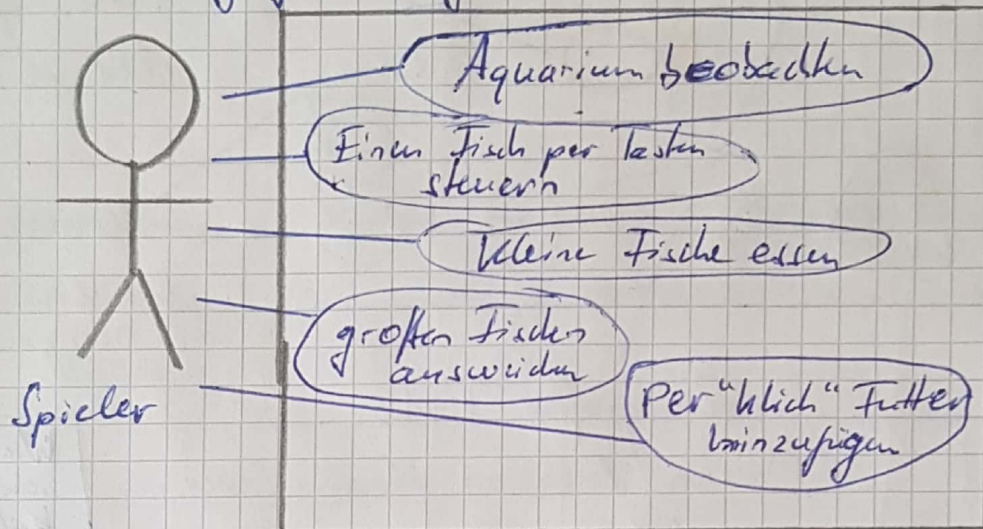 Aquarium beobachten
Einen Fisch per Tasten
steuern
kleine Fische essen
großen Fischen
ausweichen
Per "klick" Futter
hinzufügen
Spieler